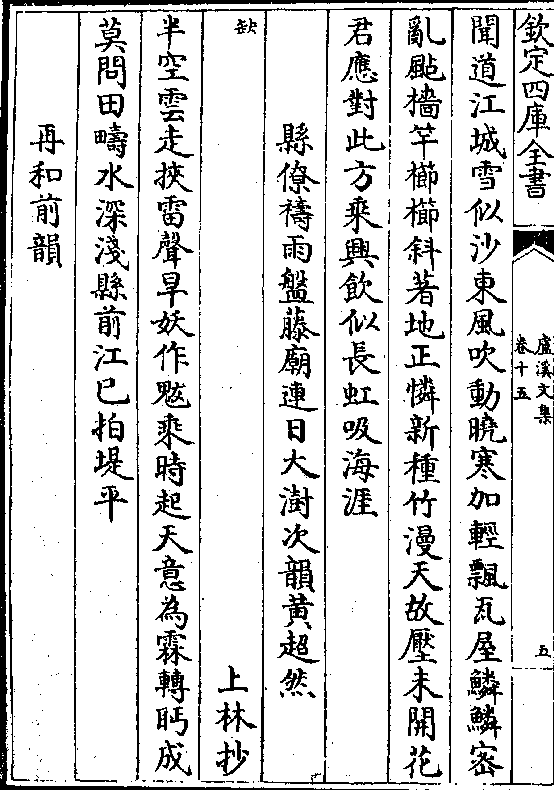 欽定四庫全書
盧溪文集
卷十五
五
聞道江城雪似沙東風吹動曉寒加輕飄瓦屋鱗鱗密
亂颭檣竿櫛櫛斜著地正憐新種竹漫天故壓未開花
君應對此方乘興飲似長虹吸海涯
縣僚禱雨盤藤廟連日大澍次韻黄超然
缺
上林抄
半空雲走挾雷聲旱妖作魃乘時起天意為霖轉眄成
莫問田疇水深淺縣前江已拍堤平
再和前韻